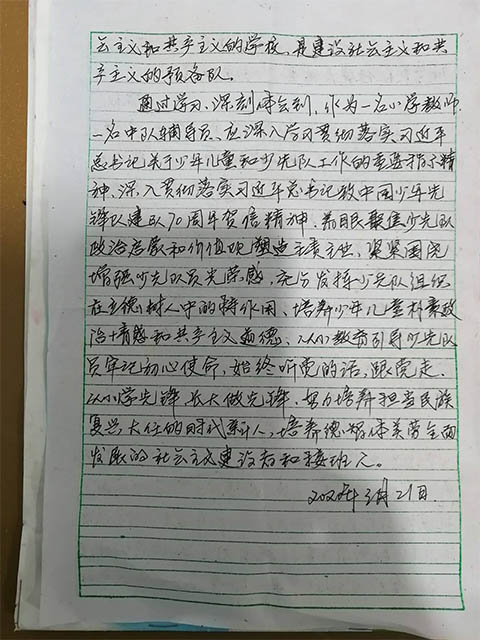 会主义和共产主义的学校,是建设社会主义和共
产主义的预备队。
通过学习,深刻体会到,作为一名小学教师
一名中队辅导员,应深入学习贯彻落实习近平
总书记关于少年儿童和少先队工作的重要指示精
神、深入贯彻落实习近平总书记致中国少年先
锋队建队70周年贺信精神、着眼聚焦少先队
政治启蒙和价值观塑造主责主业,紧紧围绕
增强少先队员光荣感,充分发挥少先队组织
在立德树人中的特作用、培养少年儿童朴素政
治情感和共产主义道德,从小教育引导少先队
员牢记初心使命,始终听党的话,跟党走,
从小学先锋,长大做先锋,努力培养担当民族
复兴大任的时代新人,培养德智体美劳全面
发展的社会主义建设者和接班人。
月21日